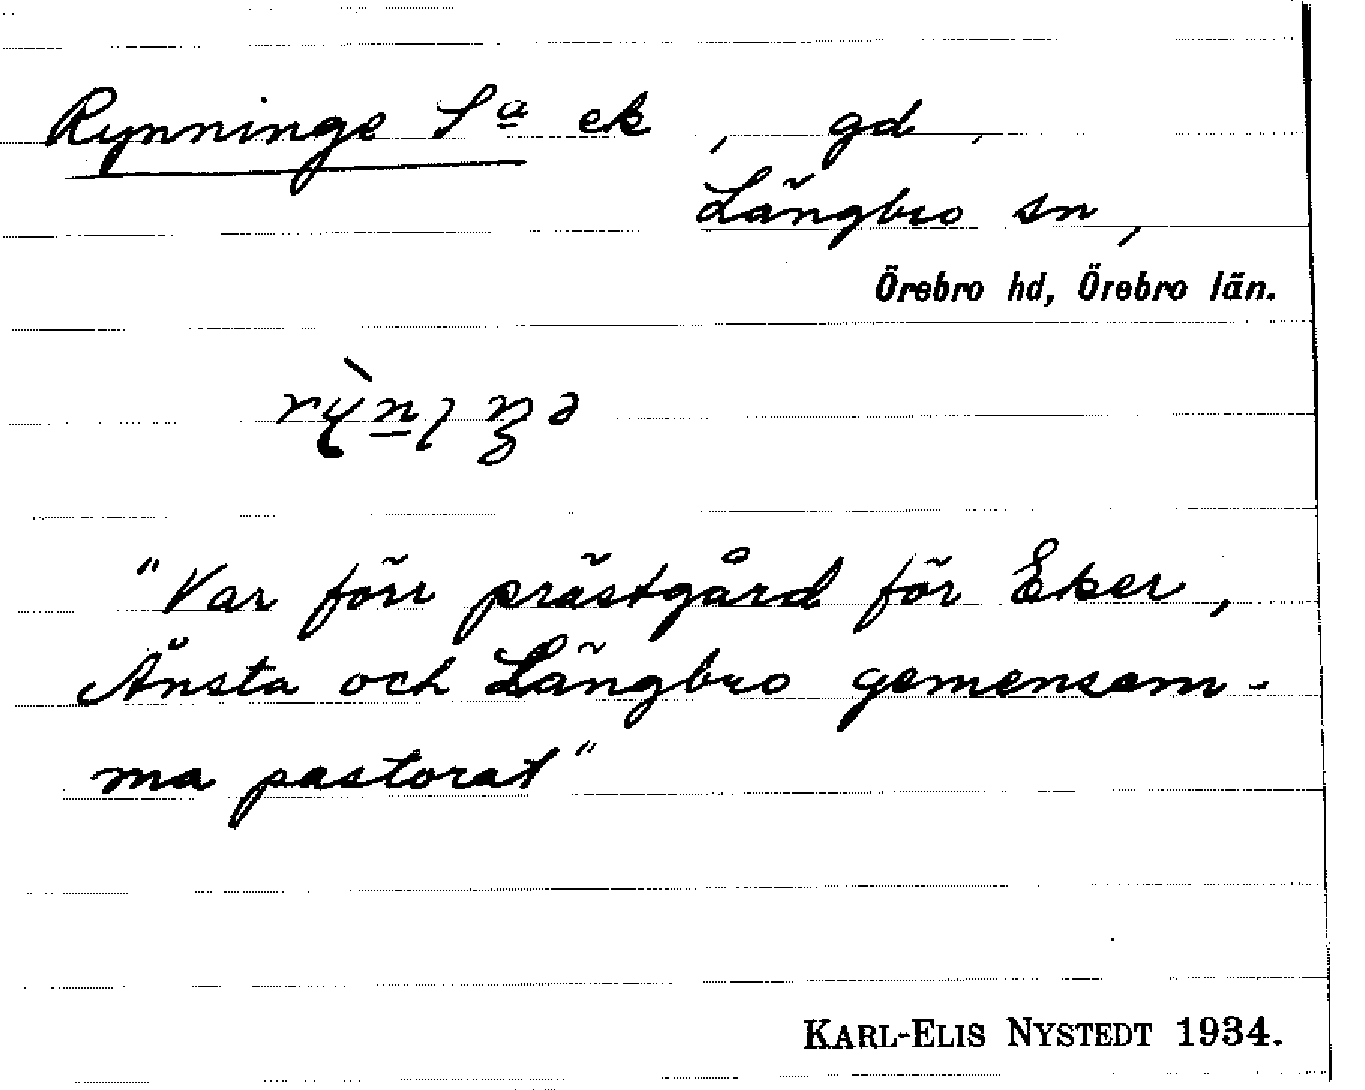 Rynninge Sª ek, gd,
Längbro sn,
Örebro hd, Örebro län.
"Var förr prästgård för Eker,
Ånsta och Längbro gemensam-
ma pastorat"
KARL-ELIS NYSTEDT 1934.